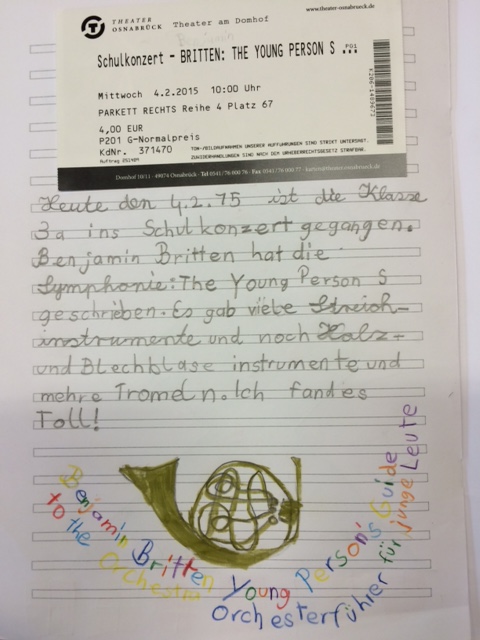 www.theater-osnabrueck.de
THEATER
OSNABRÜCK
Theater am Domhof
Schulkonzert - BRITTEN: THE YOUNG PERSON S ...
P01
Mittwoch 4.2.2015 10:00 Uhr
PARKETT RECHTS Reihe 4 Platz 67
4,00 EUR
P201 G-Normalpreis
KdNr. 371470
TON-/BILDAUFNAHMEN UNSERER AUFFÜHRUNGEN SIND STRIKT UNTERSAGT.
ZUWIDERHANDLUNGEN SIND NACH DEM URHEBERRECHTSGESETZ STRAFBAR.
Domhof 10/11 · 49074 Osnabrück · Tel 0541/76 000 76 · Fax
Heute den 4.2.15 ist die Klasse
3a ins Schulkonzert gegangen.
Benjamin Britten hat die
Symphonie: The Young Person S
geschrieben. Es gab viele Streich-
instrumente und noch Holz-
und Blechblase instrumente und
mehre Tromeln. Ich fand es
Toll!
Benjamin Britten Young Person's Guide
to the Orchestra Orchesterführer für junge Leute